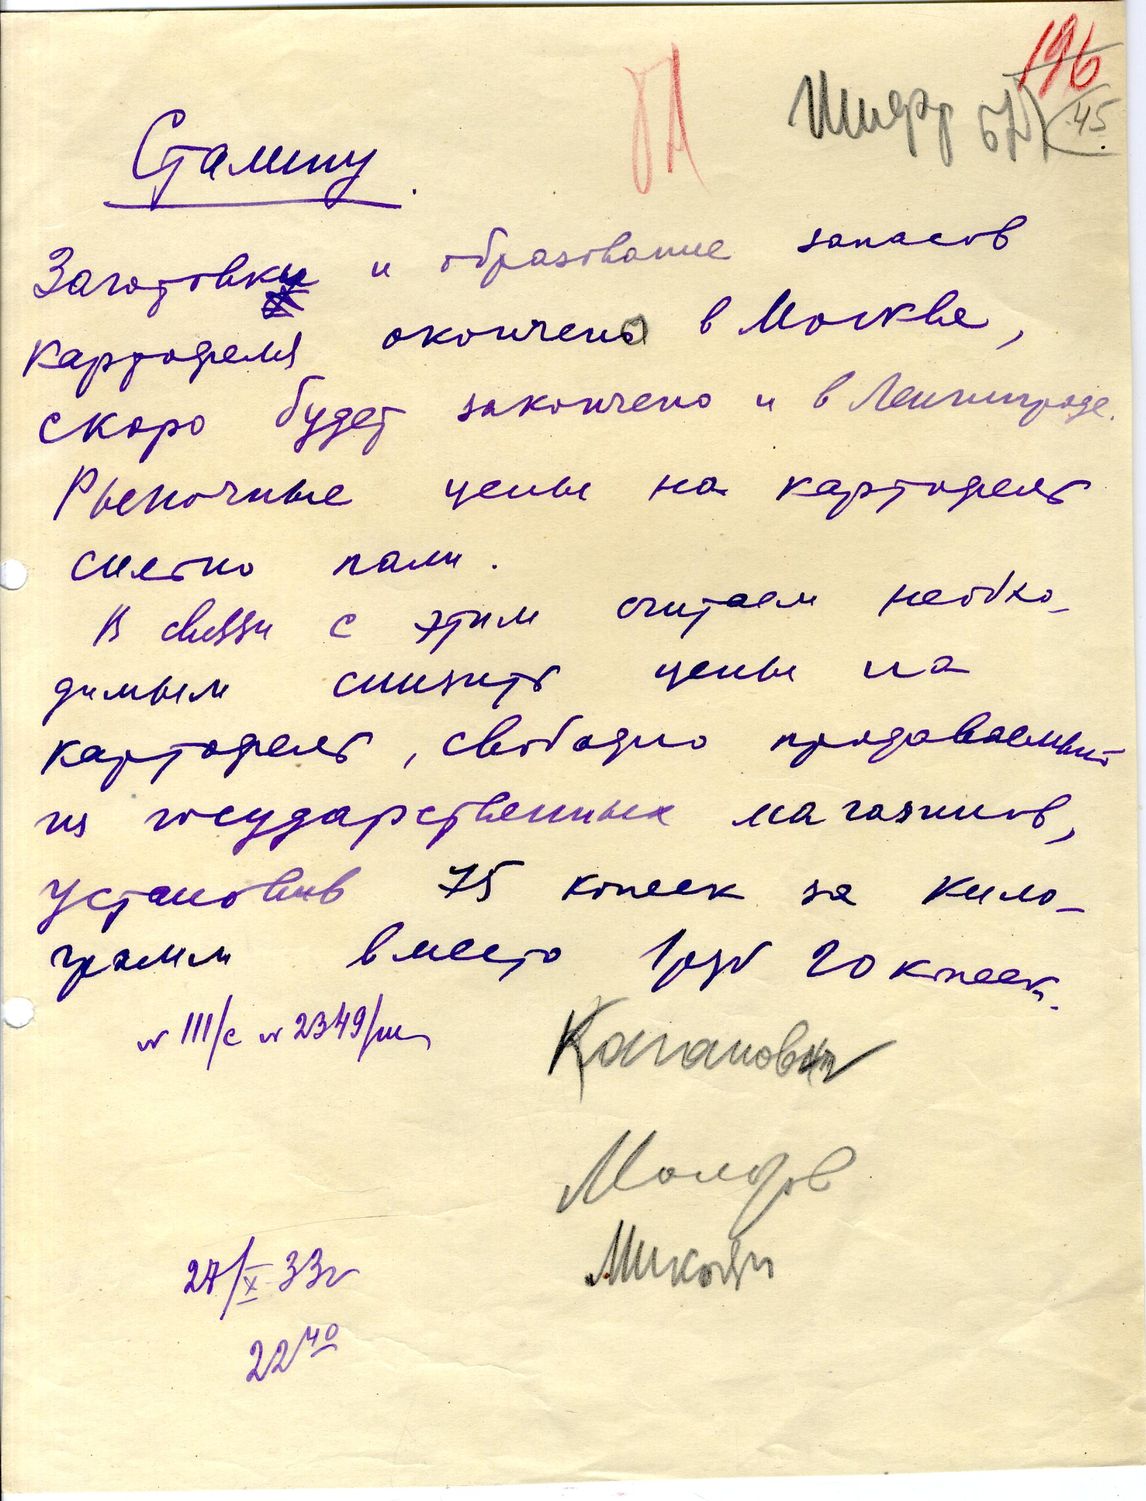 196
Шифр
45.
Сталину.
Заготовки и образование запасов
картофеля окончено в Москве,
скоро будет закончено и в Ленинграде.
Рыночные цены на картофель
сильно пали.
В связи с этим считаем необхо-
димым снизить цены на
картофель, свободно продаваемый
из государственных магазинов,
установив 75 копеек за кило-
грамм вместо 1 руб 20 копеек.
№ 111/с № 2349/ш
Каганович
Молотов
Микоян
27/X 33г
22 40